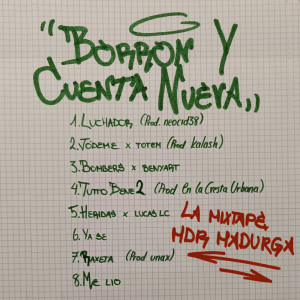 "BORRON Y
CUENTA NUEVA,,
1. LUCHADOR (Prod. neocid38)
2. JÓDEME x TOTEM (Prod Kalash)
3. BOMBERS x BENYART
4. TUTTO BENE 2 (Prod En la Cresta Urbana)
5. HERIDAS x LUCAS LC
6. YA SE
7. RAXETA (Prod unax)
8. ME LIO
LA MIXTAPE
MDR MADURGA